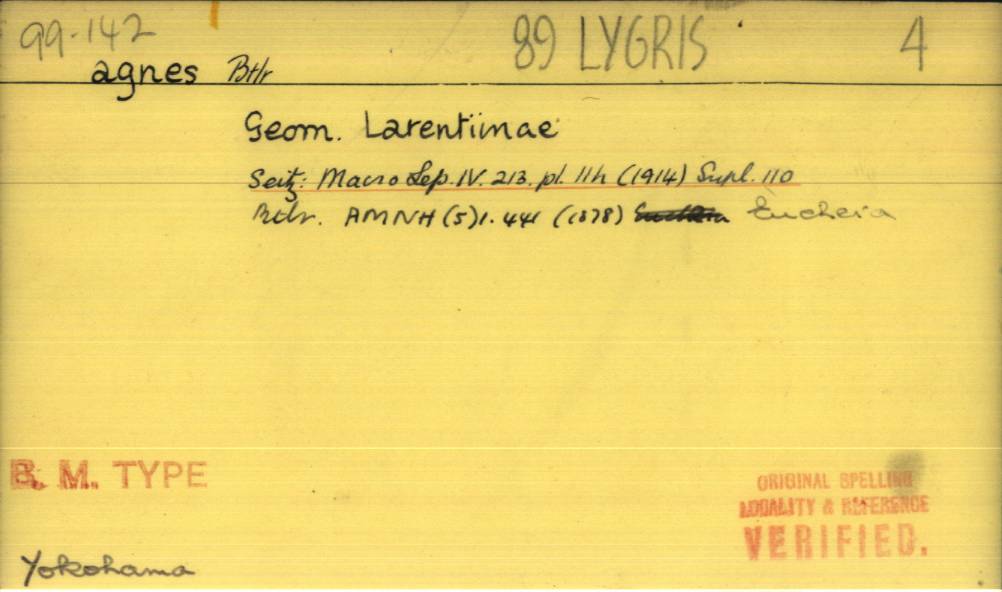 99-142 89 LYGRIS 4
agnes Btlr
Geom. Larentiinae
Seitz: Macro Lep. IV. 213. pl. 11h (1914) Supl. 110
Btlr. AMNH (5) 1. 441 (1878) Eucheia
B. M. TYPE
ORIGINAL SPELLING
LOCALITY & REFERENCE
VERIFIED.
Yokohama